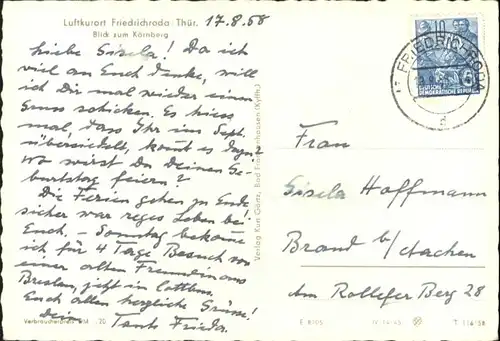 Luftkurort Friedrichroda/Thür. 17.8.58
Blick zum Körnberg
Liebe Gisela! Da ich
viel an Euch denke, will
ich Dir mal wieder einen
Gruss schicken. Es hiess
mal, dass Ihr im Sept.
übersiedelt, kommt es dazu?
Wo wirst Du Deinen Ge-
burtstag feiern?
Die Ferien gehen zu Ende
sicher war reges Leben bei
Euch. - Sonntag bekomme
ich für 4 Tage Besuch von
einer alten Freundin aus
Breslau, jetzt in Cottbus.
Euch allen herzliche Grüsse!
Dein Tante Frieda.
Verbraucherpreis DM -,20
Verlag Kurt Götz, Bad Frankenhausen (Kyffh.)
10
DEUTSCHE
DEMOKRATISCHE REPUBLIK
FRIEDRICHRODA
d
Frau
Gisela Hoffmann
Brand b/Aachen
Am Rollefer Berg 28
E 8105
IV-14-45
T 114/58